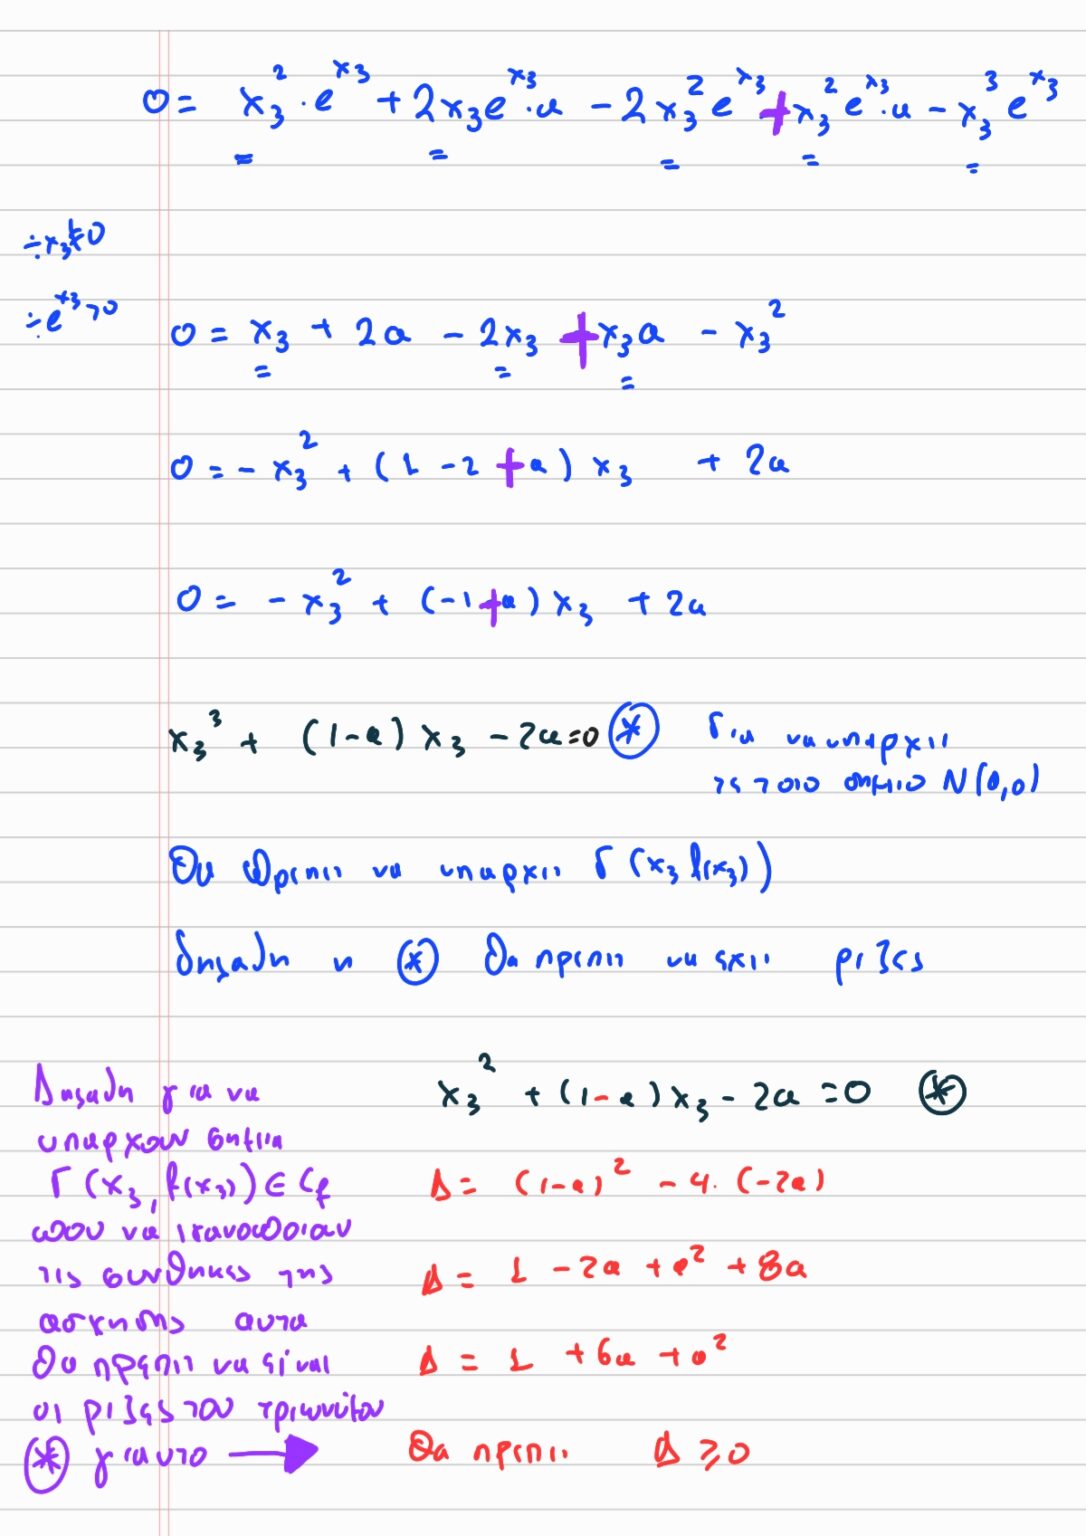 0 = x₃² · e^x₃ + 2x₃e^x₃ · α − 2x₃² e^x₃ + x₃² e^x₃ · α − x₃³ e^x₃
÷x₃≠0
÷e^x₃>0
0 = x₃ + 2α − 2x₃ + x₃α − x₃²
0 = − x₃² + (1 − 2 + α) x₃ + 2α
0 = − x₃² + (−1+α) x₃ + 2α
x₃³ + (1−α) x₃ − 2α = 0 (*) Για να υπαρχει
τετοιο σημειο N(0,0)
Θα πρεπει να υπαρχει Γ(x₃ f(x₃))
δηλαδη η (*) θα πρεπει να εχει ριζες
x₃² + (1−α) x₃ − 2α = 0 (*)
Δηλαδη για να
υπαρχουν σημεια
Γ(x₃, f(x₃)) ∈ Cf
που να ικανοποιουν
τις συνθηκες της
ασκησης αυτα
θα πρεπει να είναι
οι ριζες του τριωνυμου
(*) γιαυτο →
Δ = (1−α)² − 4 · (−2α)
Δ = 1 − 2α + α² + 8α
Δ = 1 + 6α + α²
Θα πρεπει Δ ≥ 0